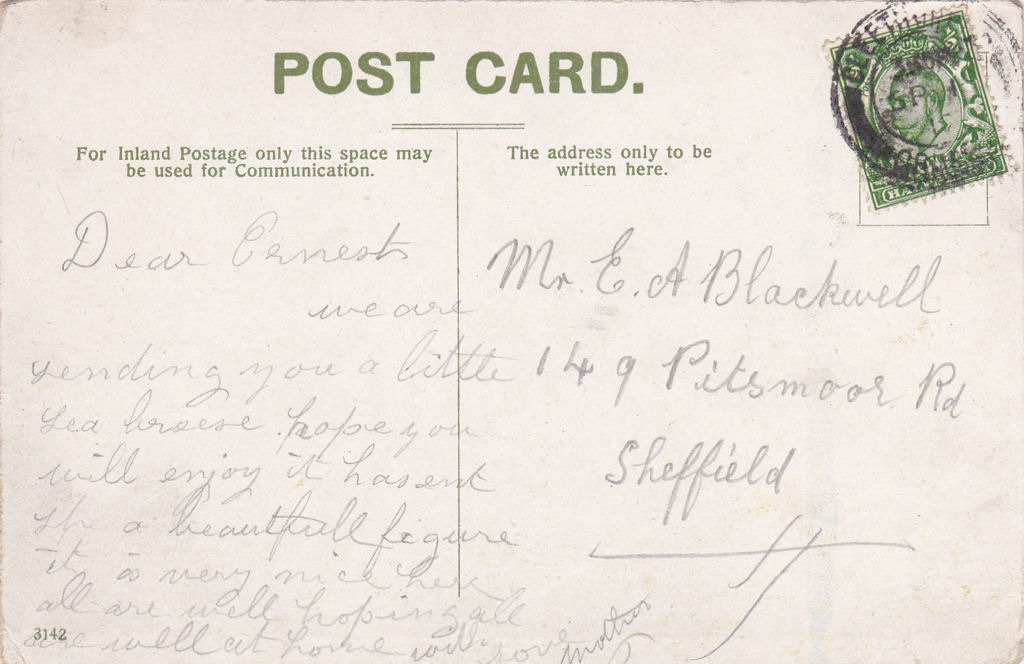 POST CARD.
For Inland Postage only this space may
be used for Communication.
The address only to be
written here.
Dear Ernest
we are
sending you a little
sea breese hope you
will enjoy it hasent
she a beautfull figure
it is very nice here
all are well hoping all
are well at home with love Mother
3142
Mr. E. A Blackwell
149 Pitsmoor Rd
Sheffield
SP 1
11